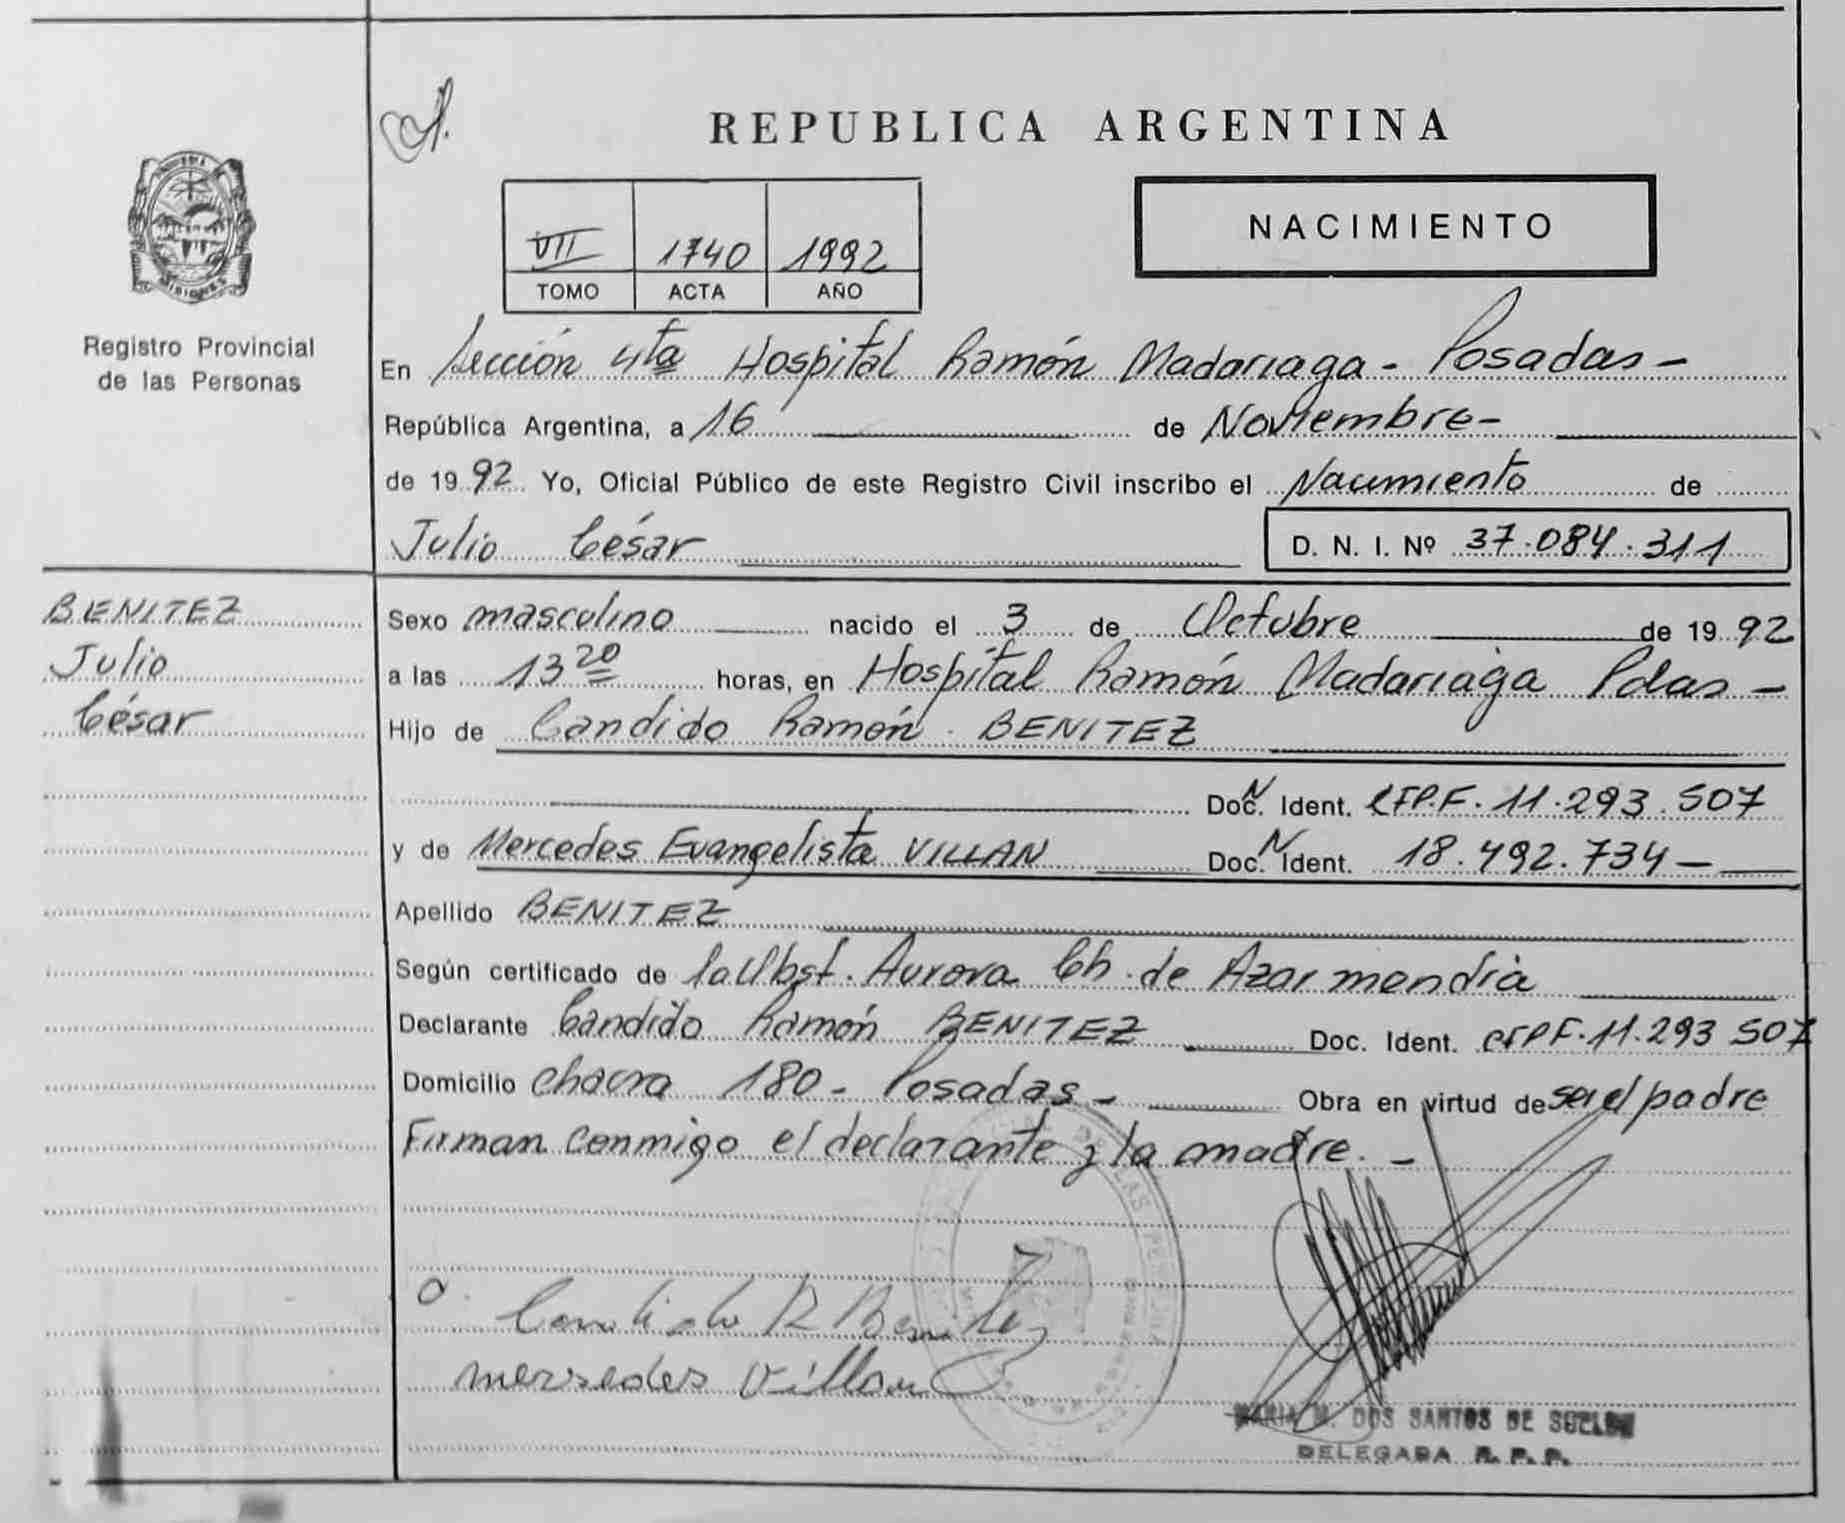 REPUBLICA ARGENTINA
MISIONES
Registro Provincial
de las Personas
VII 1740 1992
TOMO ACTA AÑO
NACIMIENTO
En Sección 4ta Hospital Ramón Madariaga - Posadas -
República Argentina, a 16 de Noviembre -
de 1992 Yo, Oficial Público de este Registro Civil inscribo el Nacimiento de
Julio César D. N. I. Nº 37.084.311
BENITEZ
Julio
César
Sexo masculino nacido el 3 de Octubre de 1992
a las 13 20 horas, en Hospital Ramón Madariaga Pdas -
Hijo de Candido Ramón BENITEZ
Doc. Ident. 11.293.507
y de Mercedes Evangelista VILLAN Doc. Ident. 18.492.734 -
Apellido BENITEZ
Según certificado de la Obst. Aurora Ch. de Azarmendia
Declarante Candido Ramón BENITEZ Doc. Ident. 11.293 507
Domicilio chacra 180 - Posadas - Obra en virtud de ser el padre
Firman conmigo el declarante y la madre. -
Candido R Benitez
mersedes Villan
MARIA M. DOS SANTOS DE
DELEGADA R. P. P.